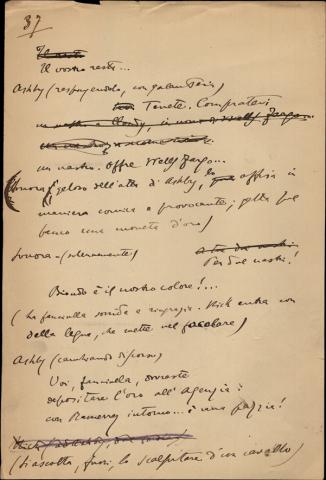 37
Il vostro resto...
Ashby (respingendolo, con galanteria)
Tenete. Compratevi
un nastro. Offre Wells Fargo...
Sonora (geloso dell'atto di Ashby, lo affissa in
maniera comica e provocante; getta sul
banco una moneta d'oro)
Sonora - (solennemente)
Per due nastri!
Biondo è il vostro colore!...
(la fanciulla sorride e ringrazia. Nick entra con
della legna, che mette nel focolare)
Ashby (cambiando discorso)
Voi, fanciulla, dovreste
depositare l'oro all'Agenzia:
con Ramerrez intorno... è una pazzia!
(si ascolta, fuori, lo scalpitare d'un cavallo)